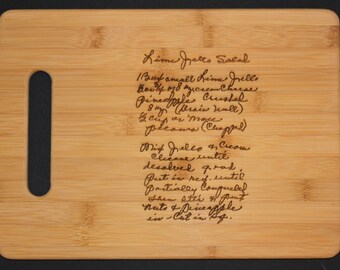 Lime Jello Salad
1 Box small Lime Jello
Box of 8 oz cream Cheese
Pineapple Crushed
8 oz (Drain Well)
½ cup or more
pecans (Chopped)
Mix Jello & Cream
Cheese until
dissolved &
Put in ref. until
Partially Congealed
then stir & put
Nuts & Pineapple
in - Cut in Sq.